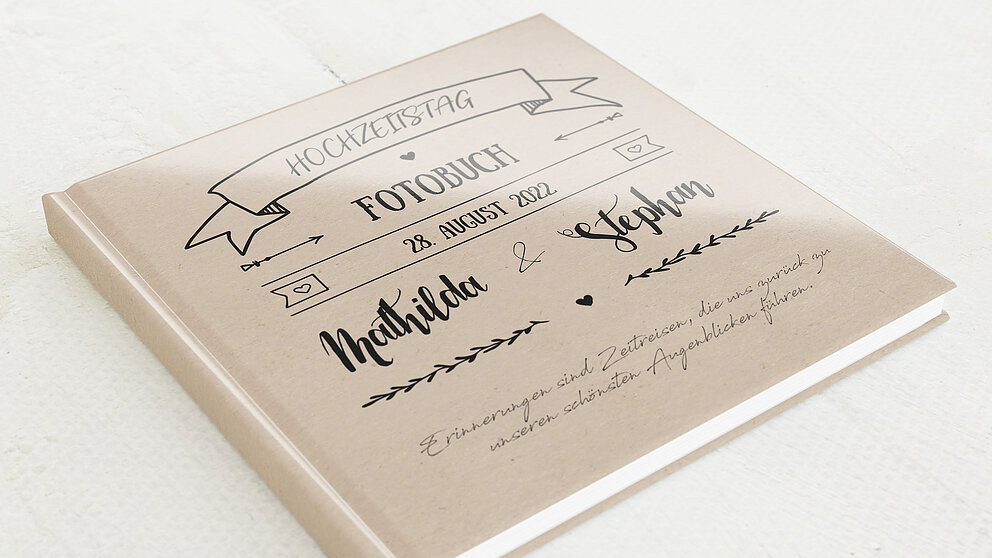 HOCHZEITSTAG
FOTOBUCH
28. AUGUST 2022
Mathilda & Stephan
Erinnerungen sind Zeitreisen, die uns zurück zu
unseren schönsten Augenblicken führen.